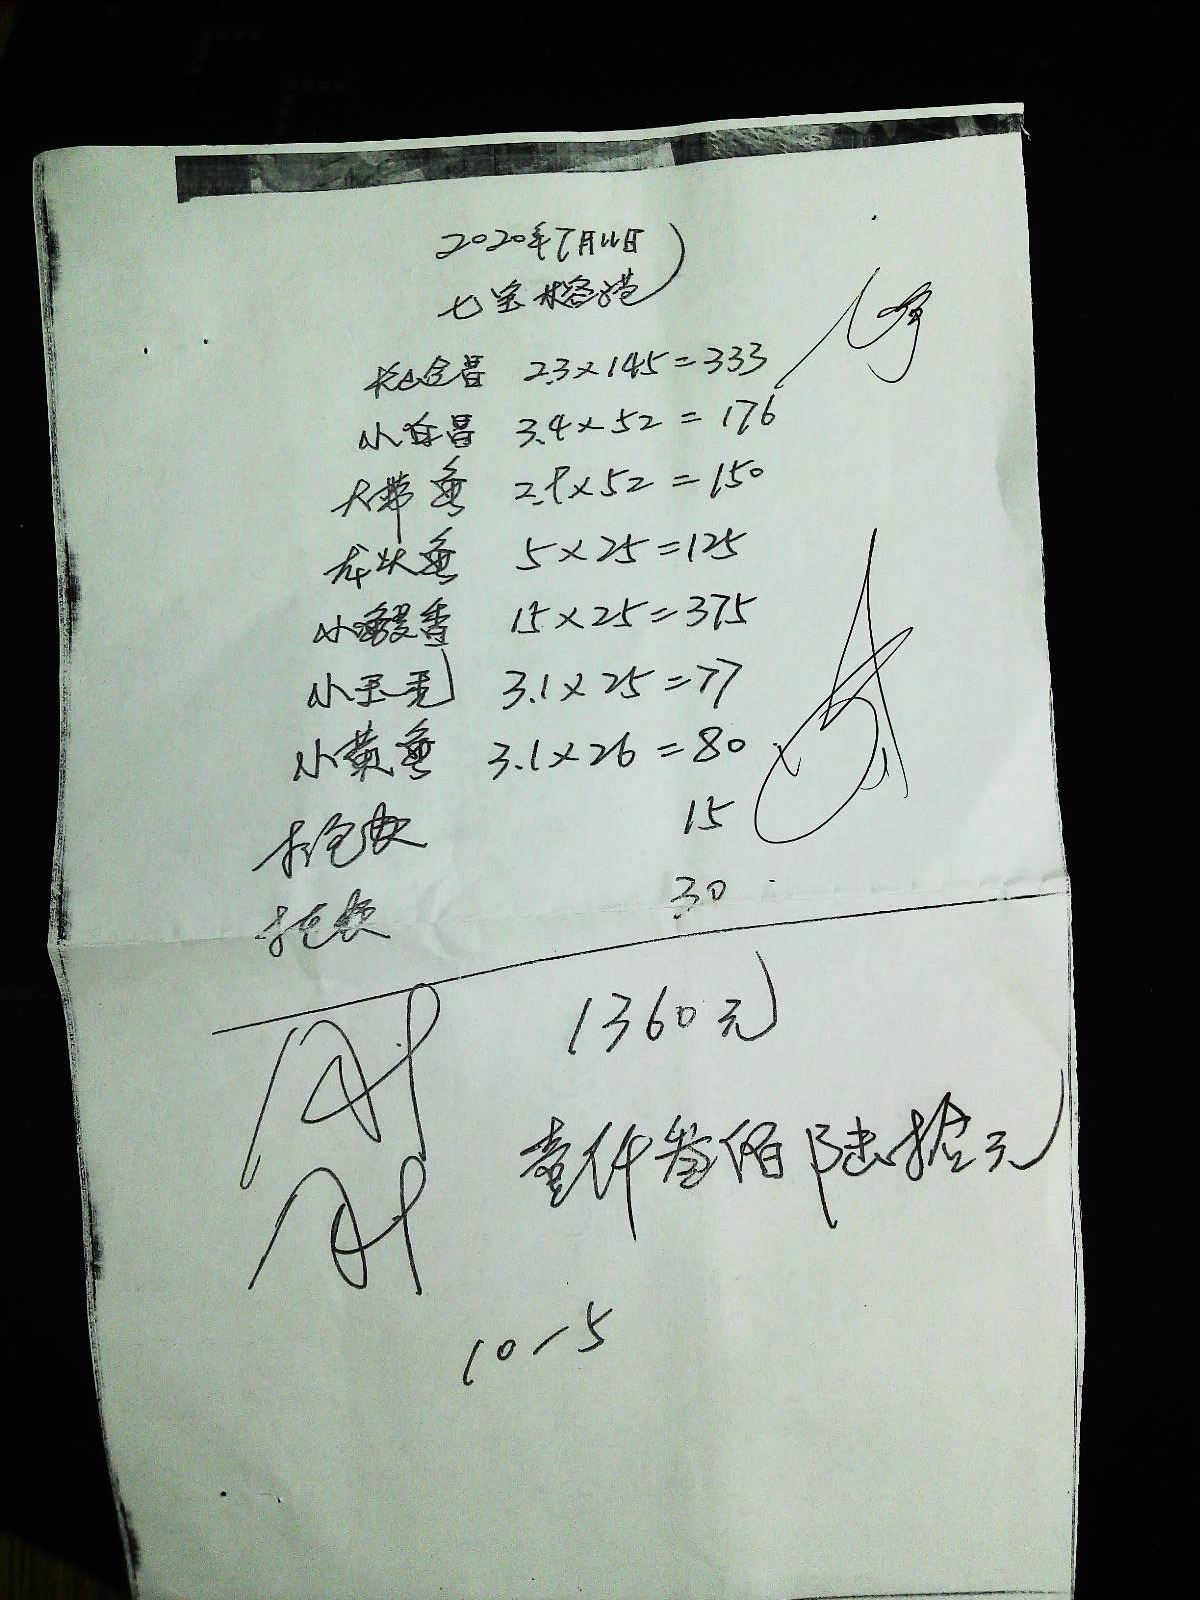 2020年7月11日
七宝榕港
长山金昌 2.3×145=333
小白昌 3.4×52=176
大带鱼 2.9×52=150
龙头鱼 5×25=125
小鳗香 15×25=375
小玉秃 3.1×25=77
小黄鱼 3.1×26=80
打包费 15
托费 30
1360元
壹仟叁佰陆拾元
10-5